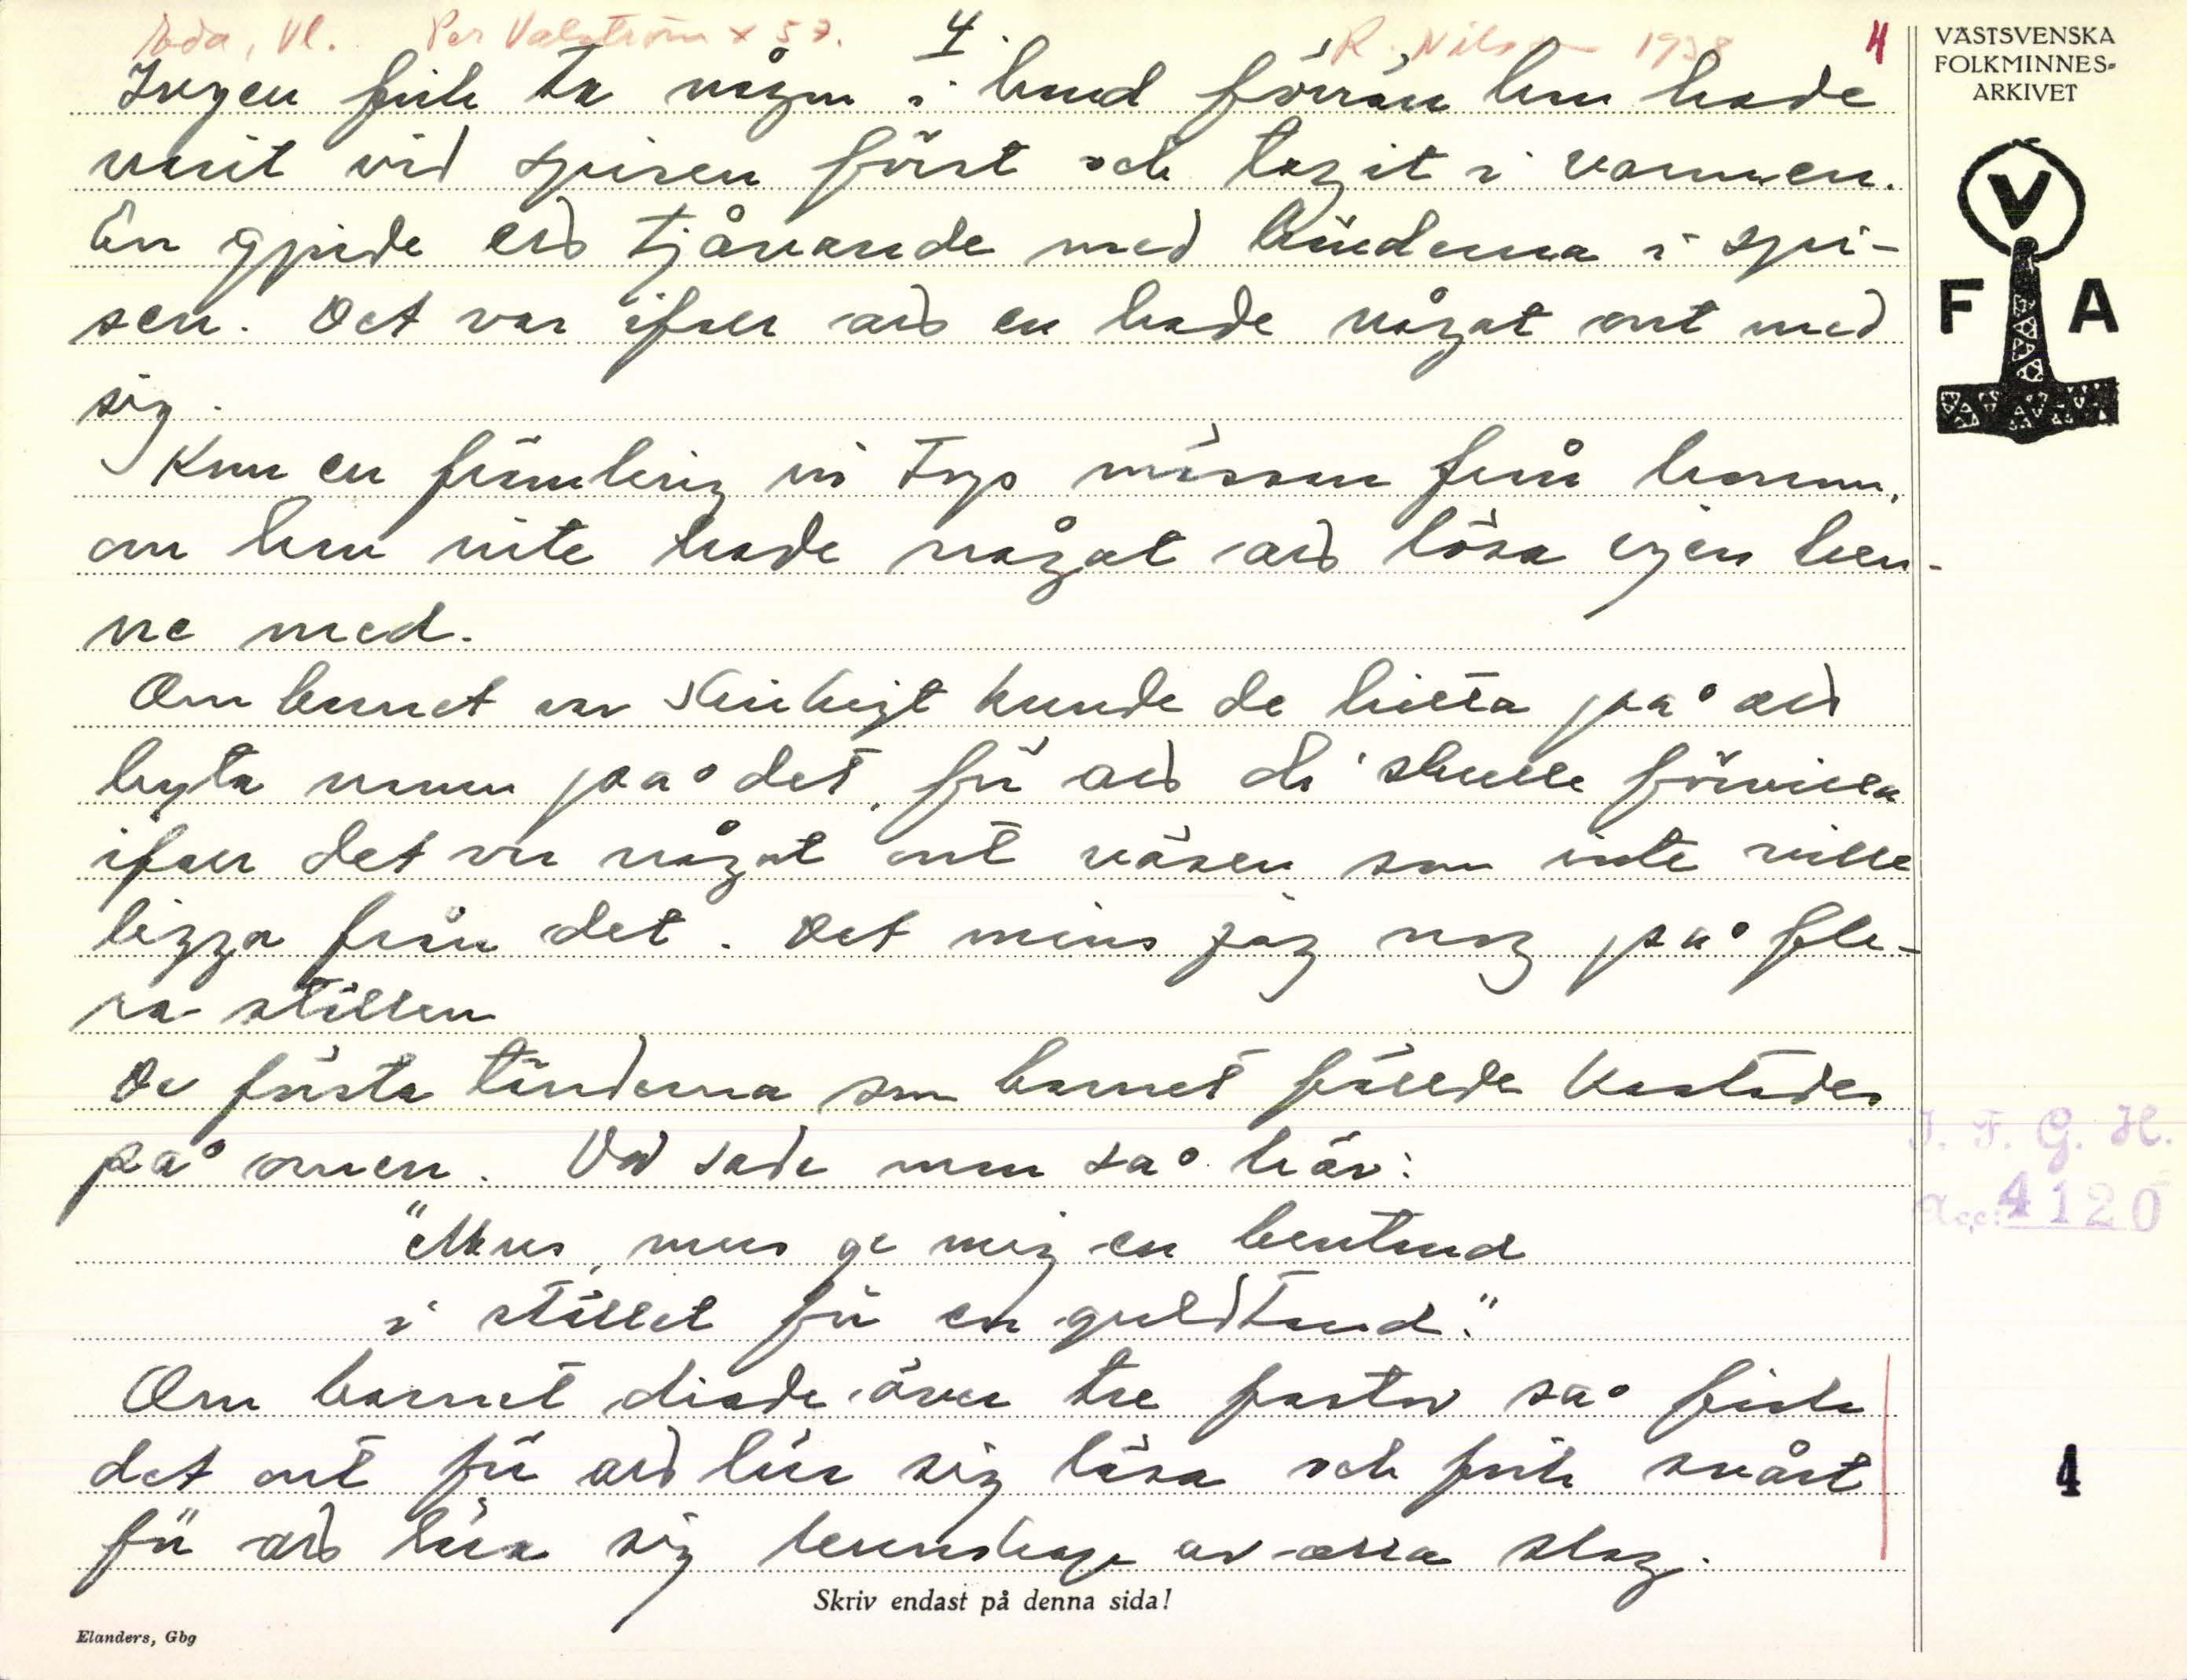 Eda, Vl. Per Valström × 57. 4. R. Nilsson 1938 4
VÄSTSVENSKA
FOLKMINNES-
ARKIVET
V
F A
Ingen fick ta någon i hand förrän han hade
varit vid spisen först och tagit i varmen.
En gjorde ett tjärande med händerna i spi-
sen. Det var ifall att en hade något ont med
sig.
Kom en främling in togs mössan från honom,
om han inte hade något att lösa igen hen-
ne med.
Om barnet var skrikigt kunde de hitta på att
byta namn på det, för att di skulle förvilla
ifall det var något ont väsen som inte ville
ligga från det. Det mins jag nog på fle-
ra ställen
De första tänderna som barnet fällde kastades
på ornen. Vad sade man så här:
"Mus, mus ge mig en bentand
i stället för en guldtand."
Om barnet diade över tre fastor så fick
det ont för att lära sig läsa och fick svårt
för att lära sig kunskap av alla slag.
I. F. G. H.
Acc: 4120
4
Skriv endast på denna sida!
Elanders, Gbg